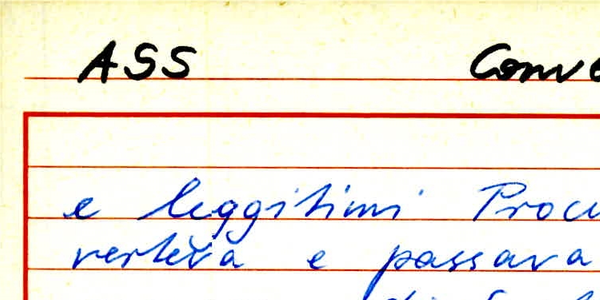 ASS Conve
e leggitimi Procu
verteva e passava